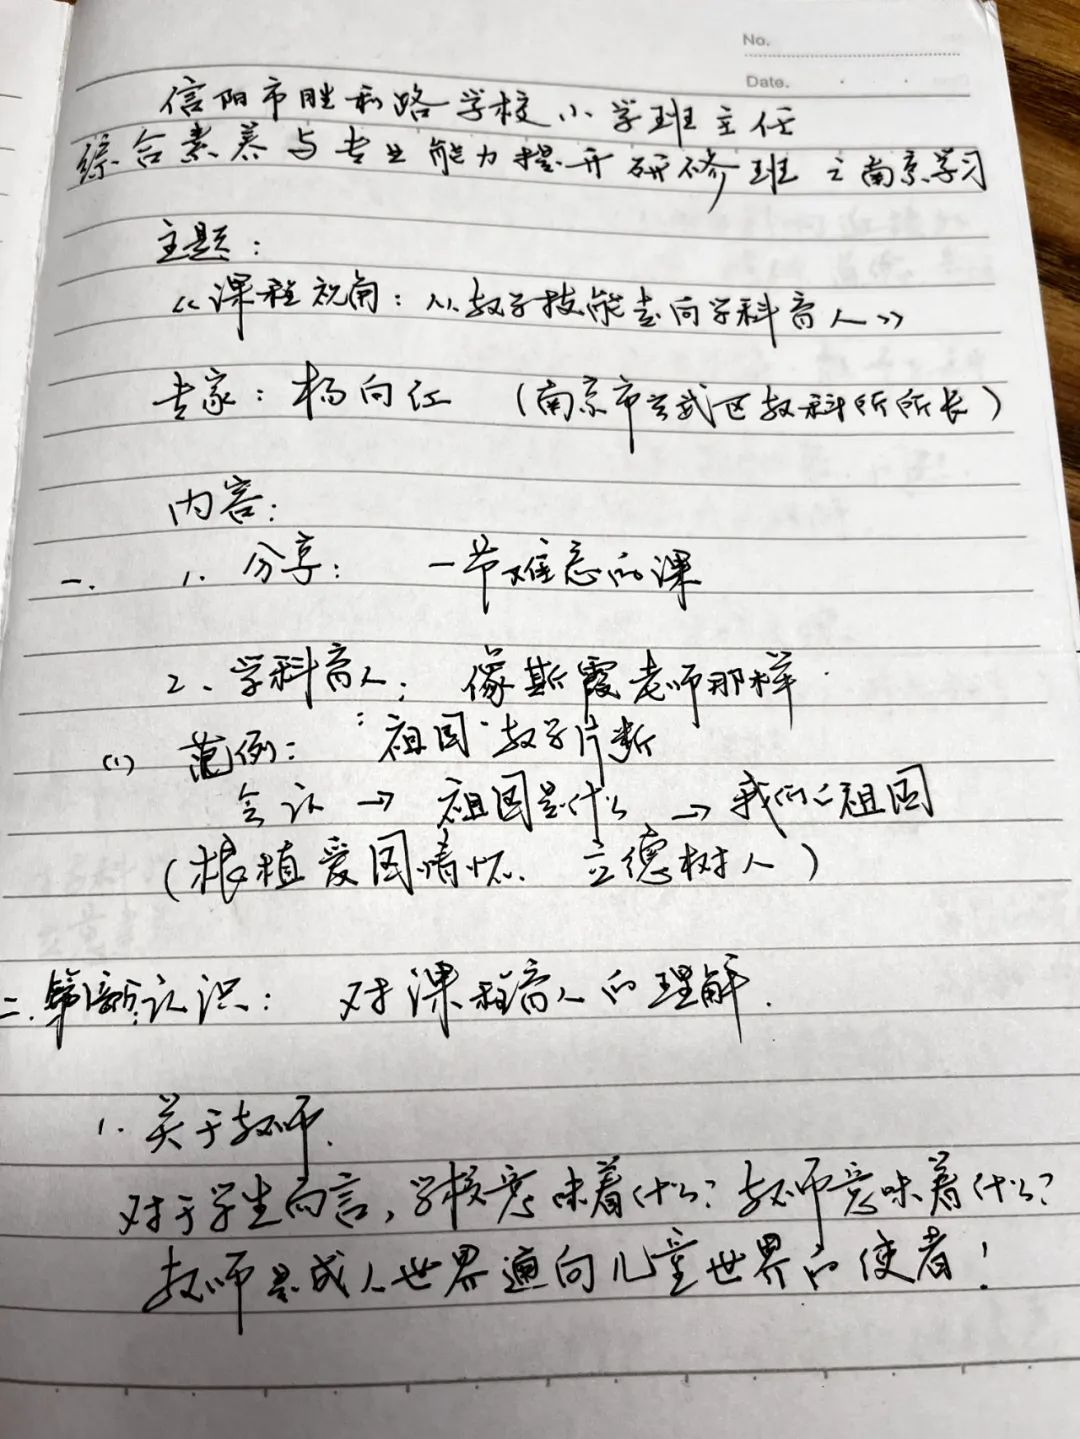 No.
Date.
信阳市胜利路学校小学班主任
综合素养与专业能力提升研修班之南京学习
主题：
《课程视角：从教学技能走向学科育人》
专家：杨向红（南京市玄武区教科所所长）
内容：
一. 1. 分享： 一节难忘的课
2、学科育人： 像斯霞老师那样.
(1) 范例： "祖国"教学片断
会认 → 祖国是什么 → 我们的祖国
（根植爱国情怀. 立德树人）
二.重新认识： 对课程育人的理解.
1. 关于教师.
对于学生而言，学校意味着什么？教师意味着什么？
教师是成人世界通向儿童世界的使者！